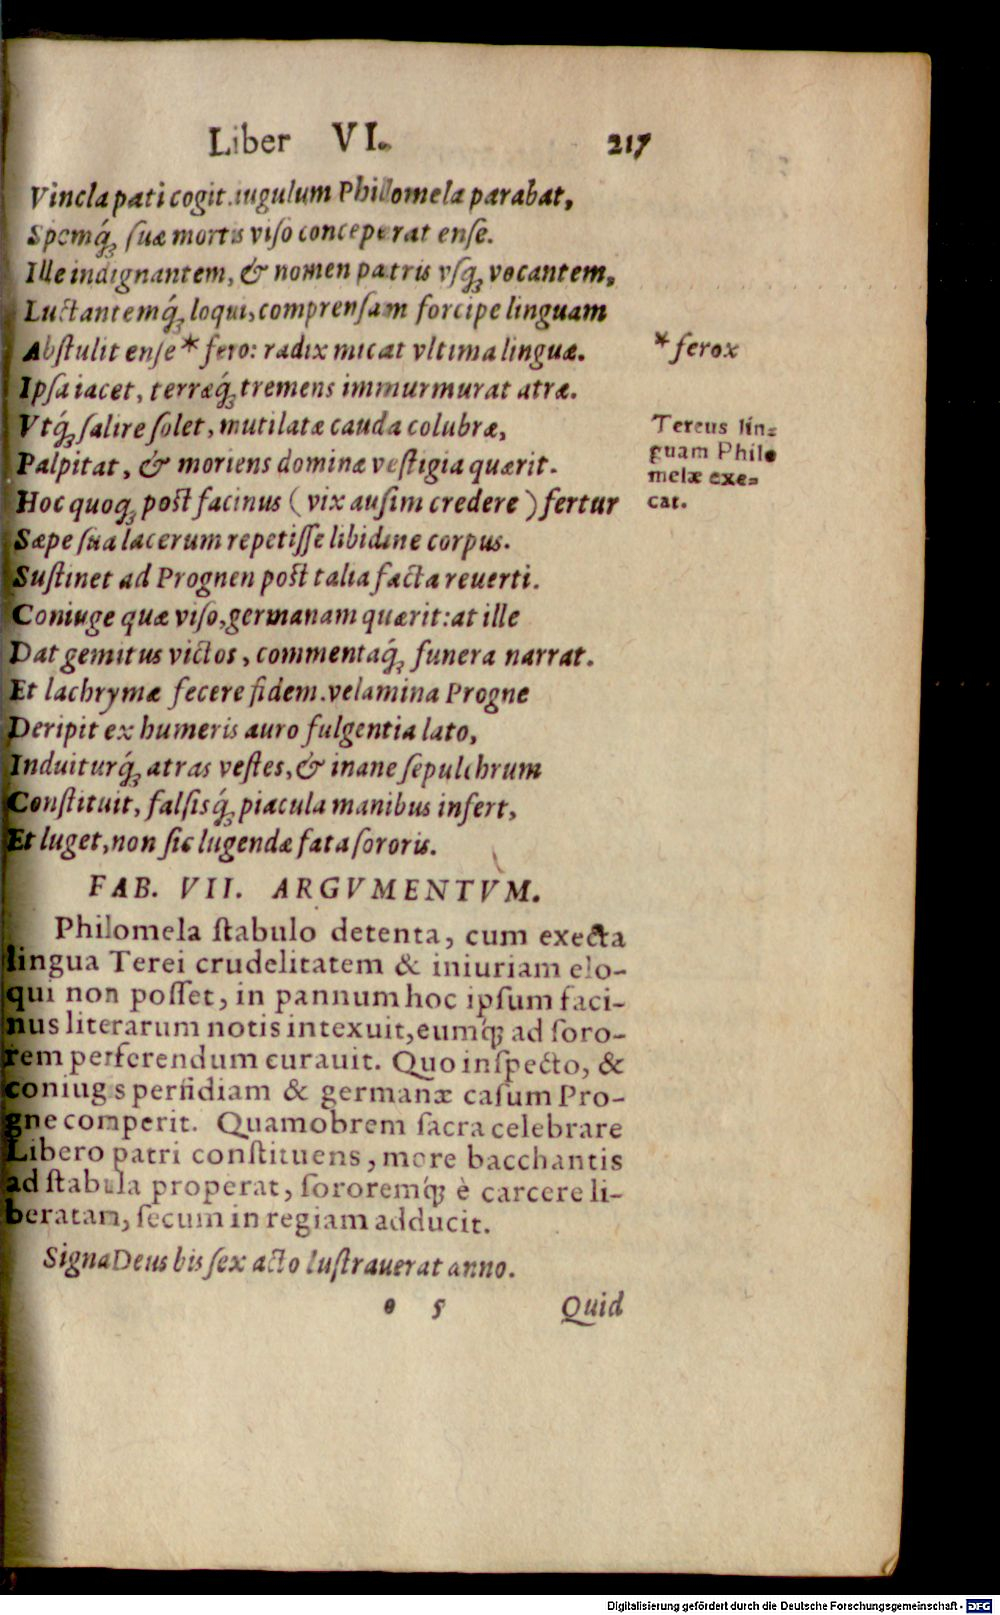 Liber VI. 217
Vincla pati cogit. iugulum Philomela parabat,
Spemq́ꝫ suæ mortis viso conceperat ense.
Ille indignantem, & nomen patris vsqꝫ vocantem,
Luctantemq́ꝫ loqui, comprensam forcipe linguam
Abstulit ense * fero: radix micat vltima linguæ.
* ferox
Ipsa iacet, terræq́ꝫ tremens immurmurat atræ.
Vtq́ꝫ salire solet, mutilatæ cauda colubræ,
Palpitat, & moriens dominæ vestigia quærit.
Hoc quoqꝫ post facinus (vix ausim credere) fertur
Tereus lin-
guam Philo
melæ exe-
cat.
Sæpe sua lacerum repetisse libidine corpus.
Sustinet ad Prognen post talia facta reuerti.
Coniuge quæ viso, germanam quærit: at ille
Dat gemitus victos, commentaq́ꝫ funera narrat.
Et lachrymæ fecere fidem. velamina Progne
Deripit ex humeris auro fulgentia lato,
Induiturq́ꝫ atras vestes, & inane sepulchrum
Constituit, falsisq́ꝫ piacula manibus infert,
Et luget, non sic lugendæ fata sororis.
FAB. VII. ARGVMENTVM.
Philomela stabulo detenta, cum execta
lingua Terei crudelitatem & iniuriam elo-
qui non posset, in pannum hoc ipsum faci-
nus literarum notis intexuit, eumq́ꝫ ad soro-
rem perferendum curauit. Quo inspecto, &
coniug s perfidiam & germanæ casum Pro-
gne comperit. Quamobrem sacra celebrare
Libero patri constituens, more bacchantis
ad stabula properat, sororemq́ꝫ è carcere li-
beratam, secum in regiam adducit.
Signa Deus bis sex acto lustrauerat anno.
o 5 Quid
Digitalisierung gefördert durch die Deutsche Forschungsgemeinschaft - DFG